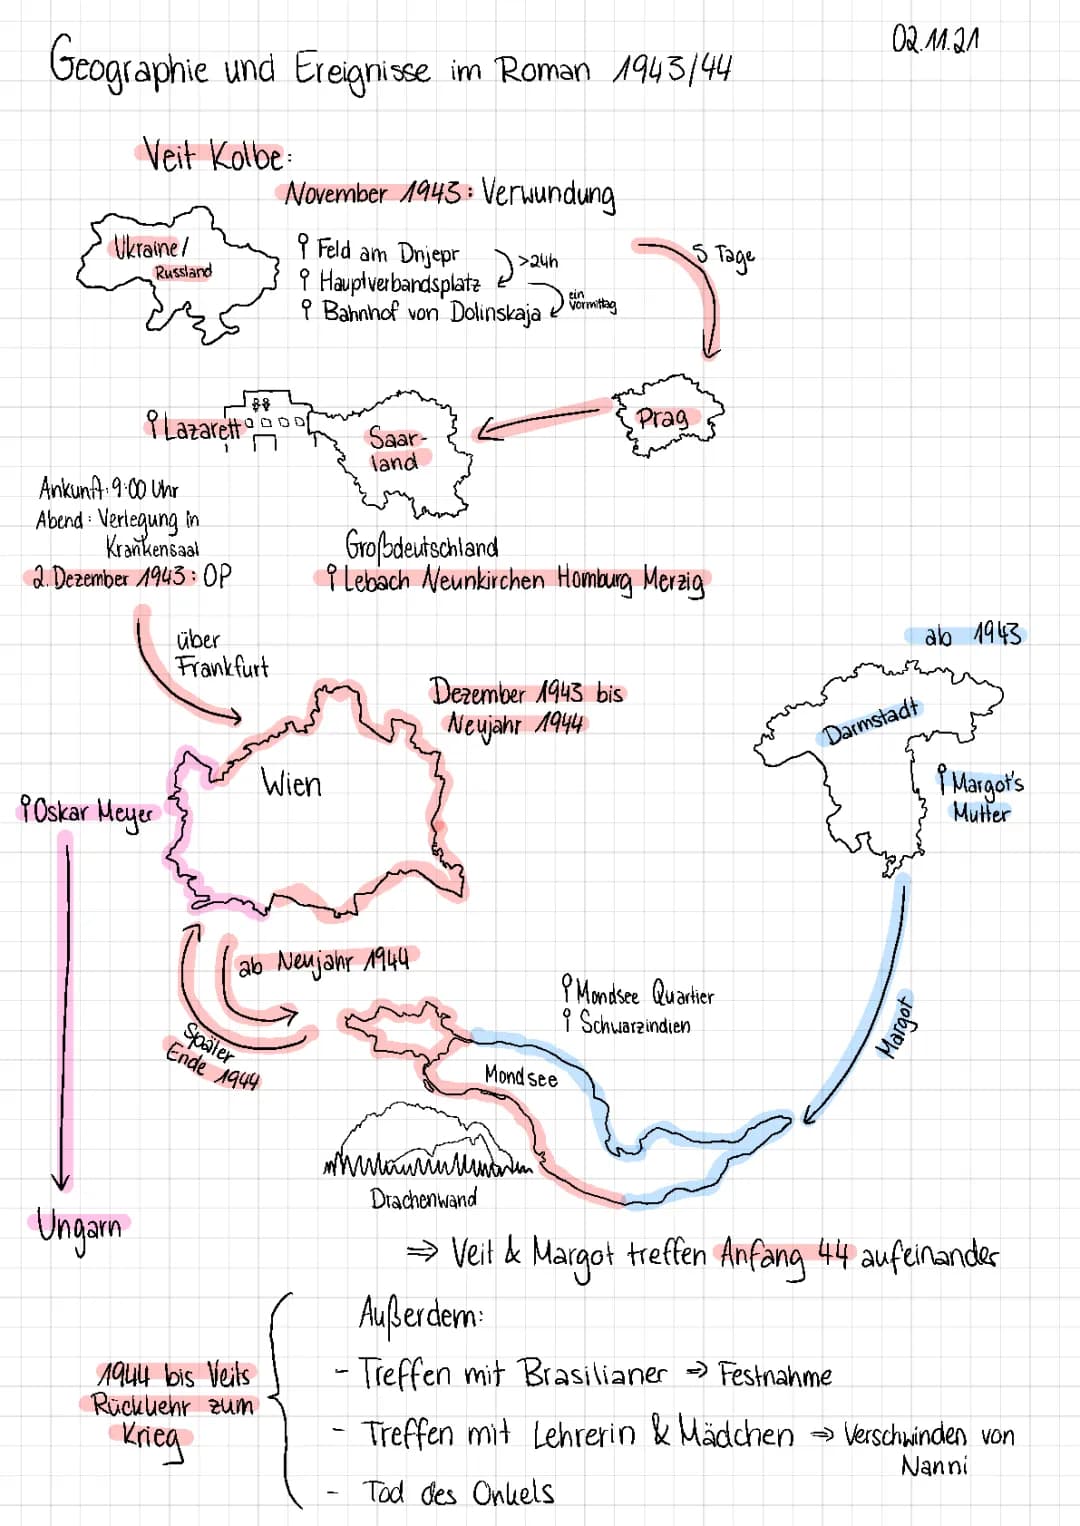 02.11.21
Geographie und Ereignisse im Roman 1943/44
Veit Kolbe:
November 1943: Verwundung
Ukraine/
Russland
Feld am Dnjepr
>24h
Hauptverbandsplatz
ein
Vormittag
Bahnhof von Dolinskaja
5 Tage
Lazarett
Saar-
land
Prag
Ankunft: 9:00 Uhr
Abend: Verlegung in
Krankensaal
2. Dezember 1943: OP
Großdeutschland
Lebach Neunkirchen Homburg Merzig
über
Frankfurt
ab 1943
Dezember 1943 bis
Neujahr 1944
Darmstadt
Wien
Margot's
Mutter
Oskar Meyer
ab Neujahr 1944
Mondsee Quartier
Schwarzindien
Margot
Später
Ende 1944
Mondsee
Drachenwand
Ungarn
⇒ Veit & Margot treffen Anfang 44 aufeinander
Außerdem:
1944 bis Veits
Rückkehr zum
Krieg
- Treffen mit Brasilianer ⇒ Festnahme
- Treffen mit Lehrerin & Mädchen ⇒ Verschwinden von
Nanni
- Tod des Onkels